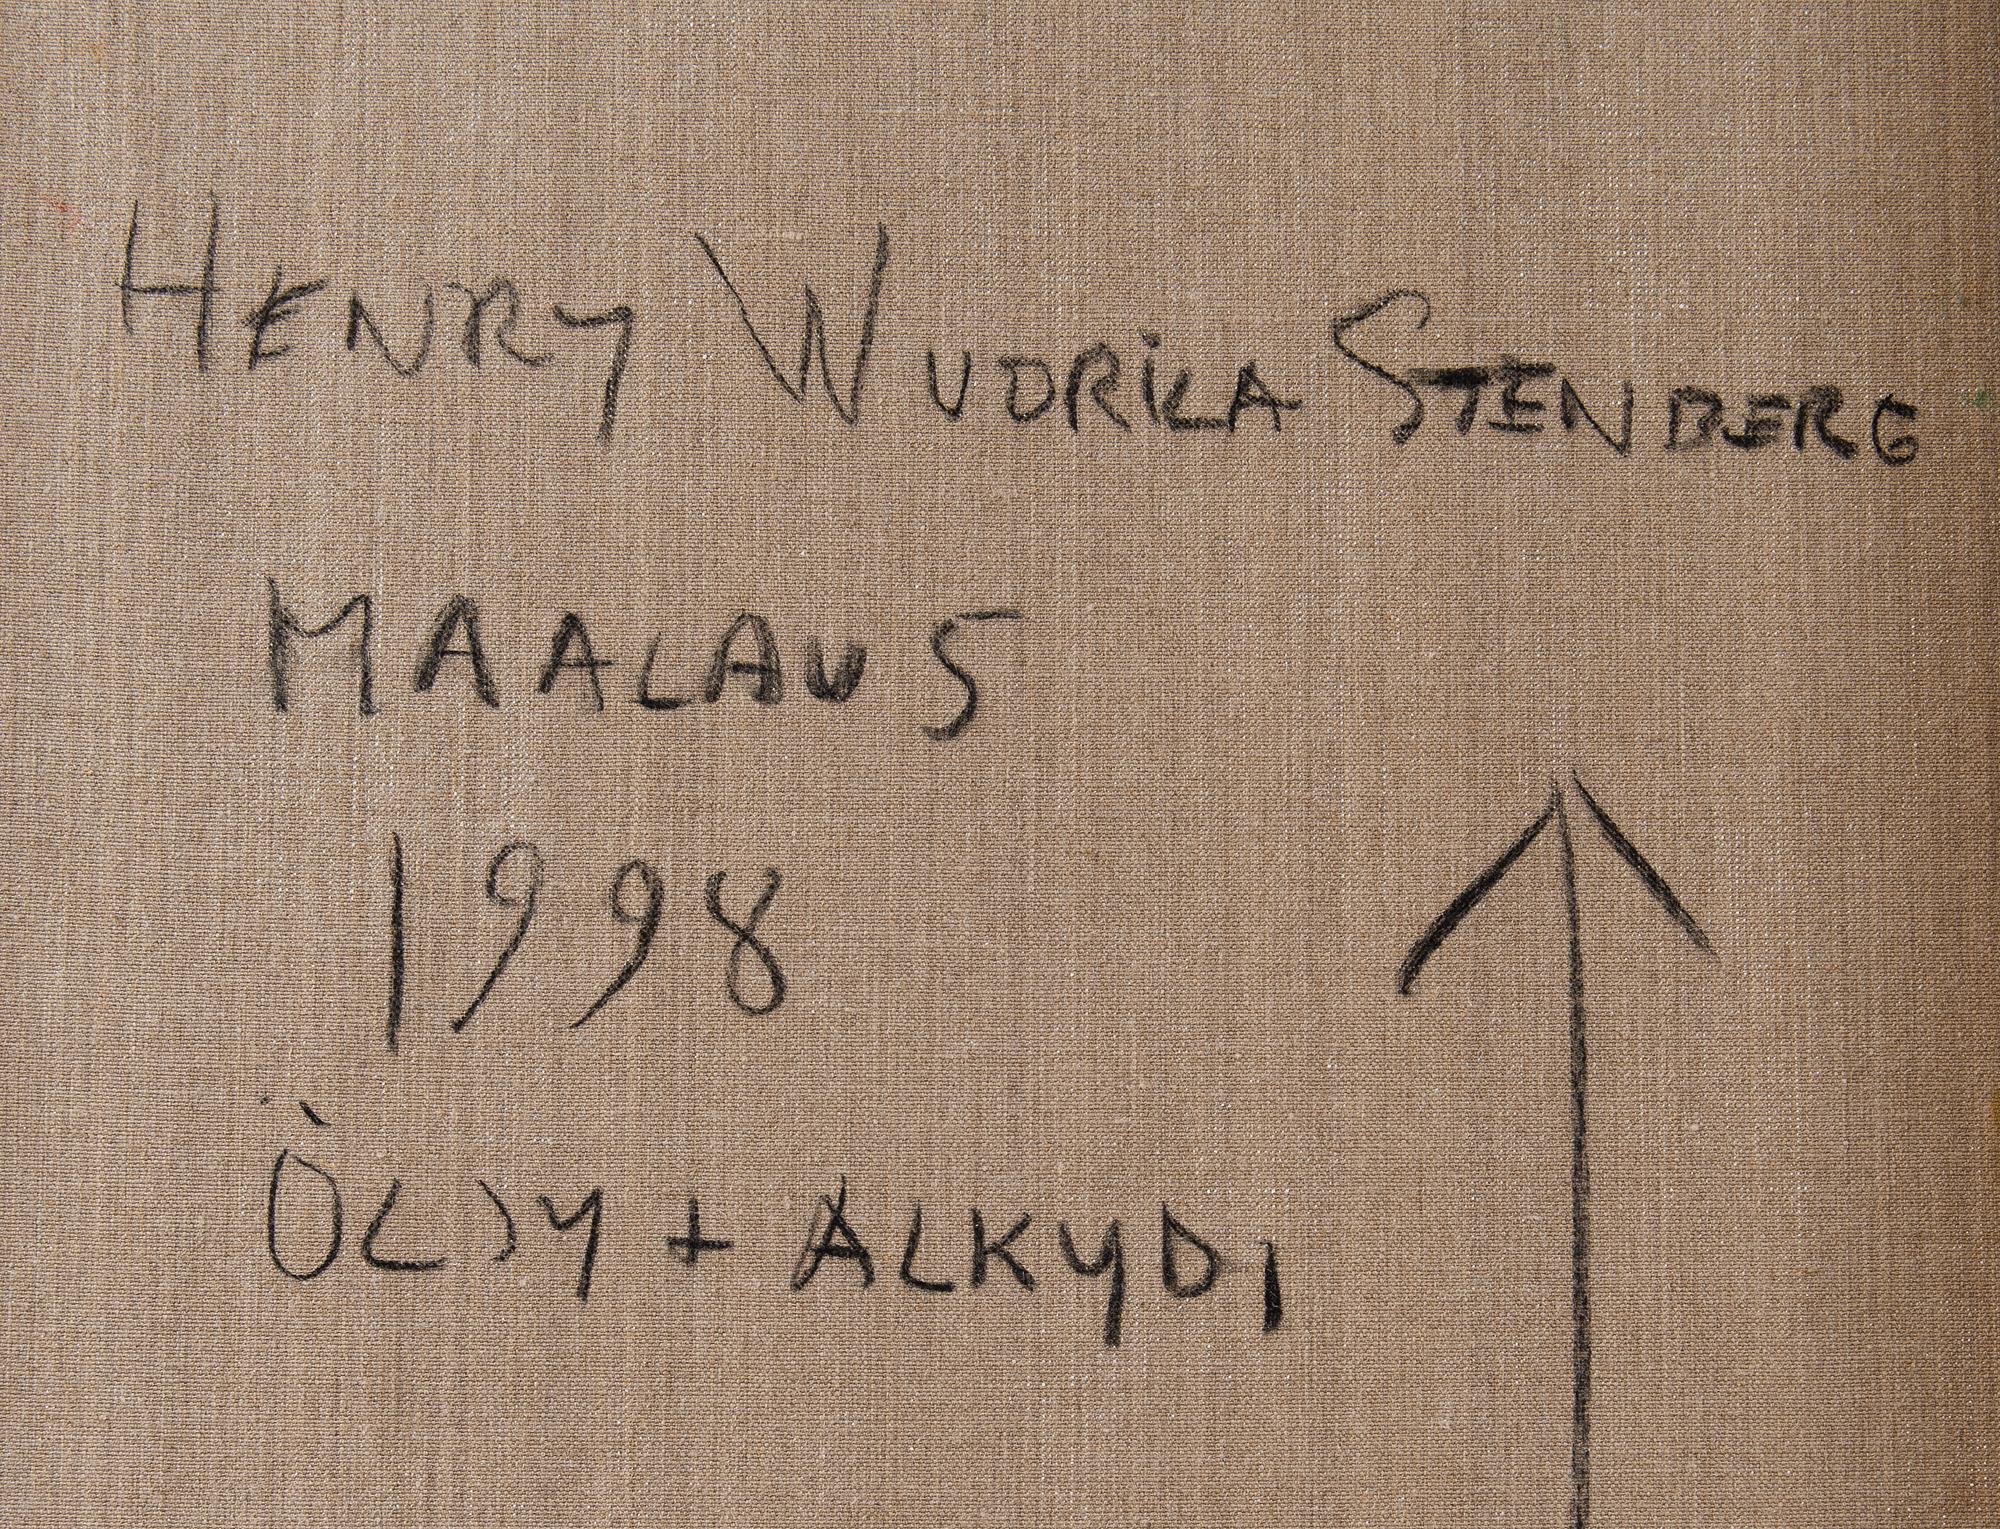 HENRY WUORILA STENBERG
MAALAUS
1998
ÖLJY + ALKYDI